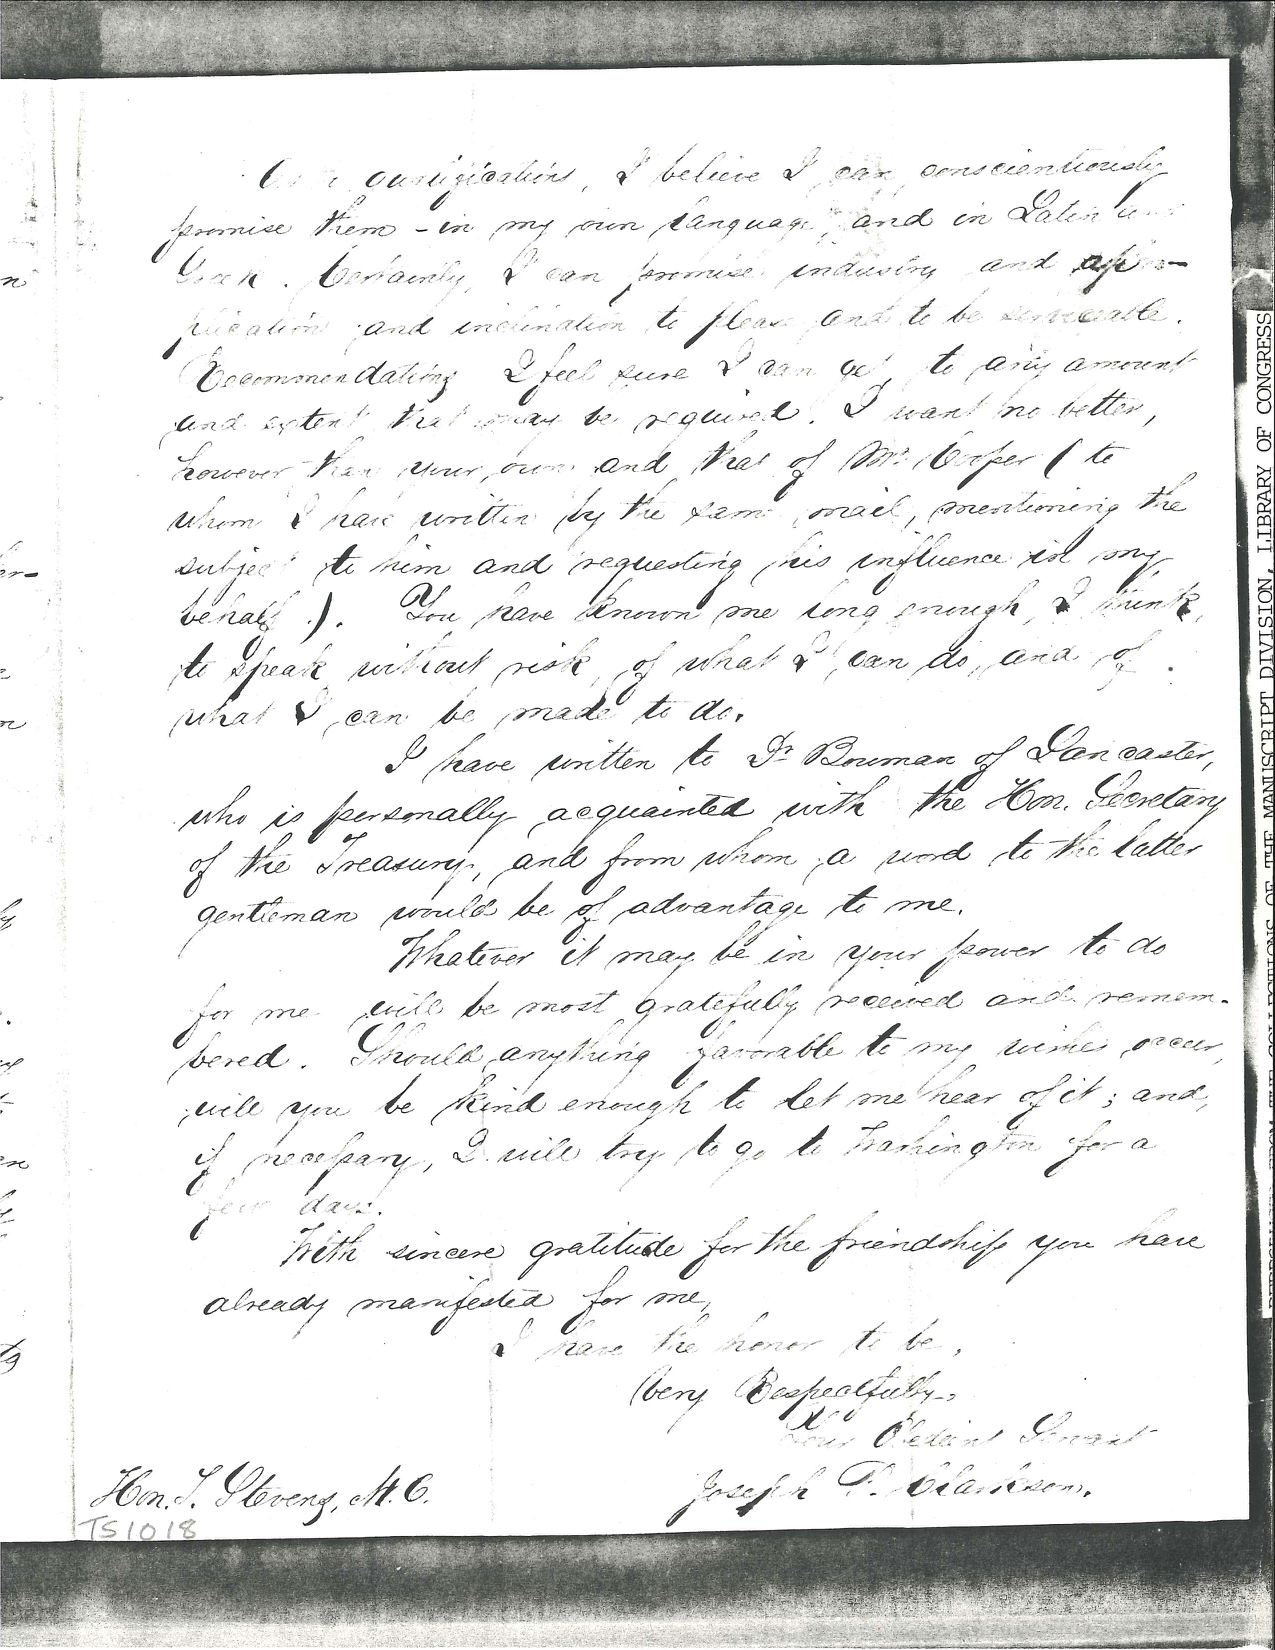 As to qualifications, I believe I can conscientiously
promise them - in my own language, and in Latin and
Greek. Certainly, I can promise industry and ap-
plication and inclination to please and to be serviceable.
Recommendations I feel sure I can get to any amount
and extent that may be required. I want no better,
however than your own and that of Mr. Cooper (to
whom I have written by the same mail, mentioning the
subject to him and requesting his influence in my
behalf.). You have known me long enough, I think,
to speak without risk, of what I can do, and of
what I can be made to do.
I have written to Dr Bowman of Lancaster,
who is personally acquainted with the Hon. Secretary
of the Treasury, and from whom a word to the latter
gentleman would be of advantage to me.
Whatever it may be in your power to do
for me will be most gratefully received and remem-
bered. Should anything favorable to my wishes occur,
will you be kind enough to let me hear of it; and,
if necessary, I will try to go to Washington for a
few days.
With sincere gratitude for the friendship you have
already manifested for me,
I have the honor to be,
Very Respectfully,
Your Obedient Servant
Joseph P. Clarkson.
Hon. T. Stevens, M.C.
TS1018
REPRODUCED FROM THE COLLECTIONS OF THE MANUSCRIPT DIVISION, LIBRARY OF CONGRESS